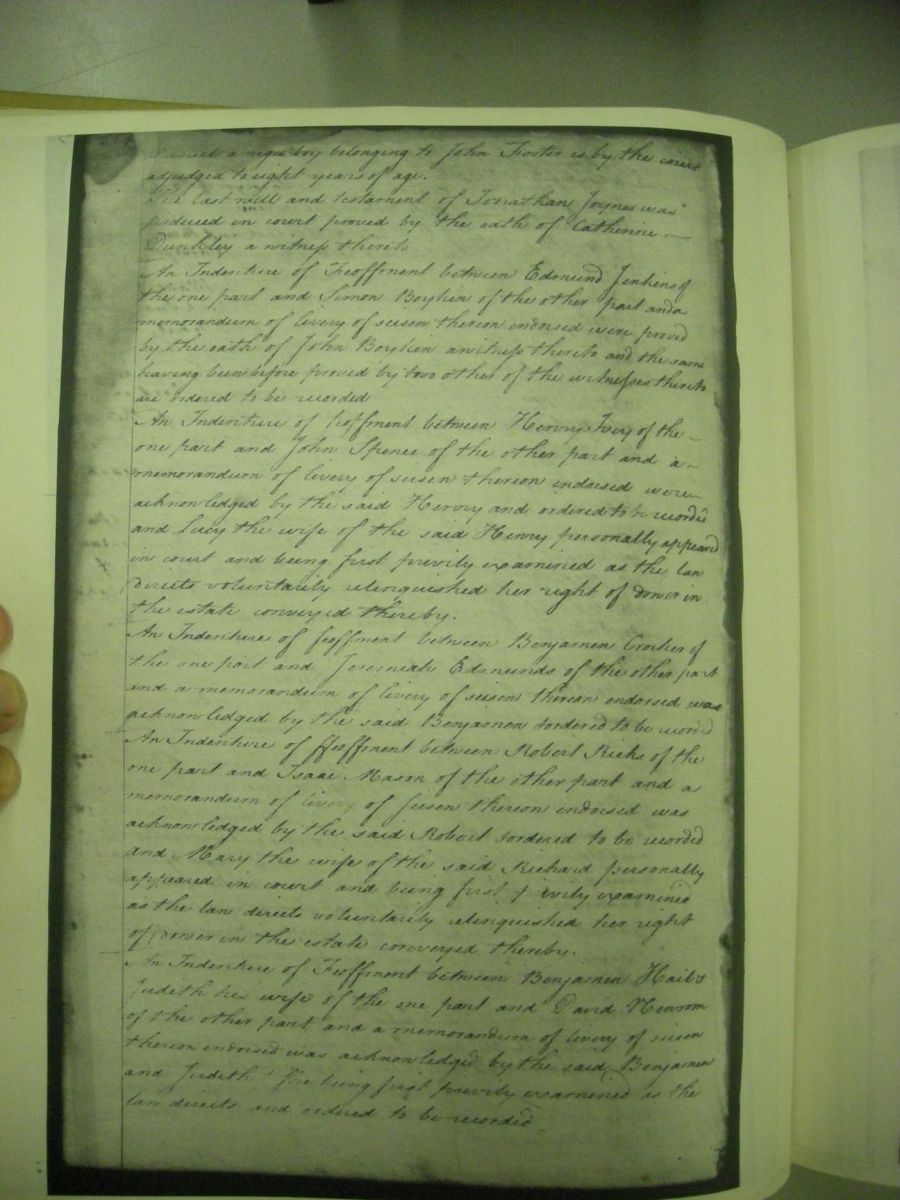 a negro boy belonging to John Foster is by the court
adjudged to eight years of age.
The last will and testament of Jonathan Joyner was
produced in court proved by the oath of Catherine
Dunkley a witness thereto
An Indenture of Feoffment between Edmund Jenkins of
the one part and Simon Boykin of the other part and a
memorandum of livery of seisen thereon endorsed were proved
by the oath of John Boykin a witness thereto and the same
having been before proved by two other of the witnesses thereto
are ordered to be recorded
An Indenture of feoffment between Henry Ivey of the
one part and John Spence of the other part and a
memorandum of livery of seisen thereon endorsed were
acknowledged by the said Henry and ordered to be recorded
and Lucy the wife of the said Henry personally appeared
in court and being first privily examined as the law
directs voluntarily relinquished her right of Dower in
the estate conveyed thereby.
An Indenture of feoffment between Benjamen Crocker of
the one part and Jeremiah Edmunds of the other part
and a memorandum of livery of seisen therean endorsed was
acknowledged by the said Benjamen & ordered to be recorded
An Indenture of ffeoffment between Robert Ricks of the
one part and Isaac Mason of the other part and a
memorandum of livery of seisen thereon endorsed was
acknowledged by the said Robert & ordered to be recorded
and Mary the wife of the said Richard personally
appeared in court and being first privily examined
as the law directs voluntarily relinquished her right
of Dower in the estate conveyed thereby.
An Indenture of Feoffment between Benjamen Hail &
Judeth his wife of the one part and David Newsom
of the other part and a memorandum of livery of seisen
thereon endorsed was acknowledged by the said Benjamen
and Judeth (she being first privily examined) as the
law directs and ordered to be recorded